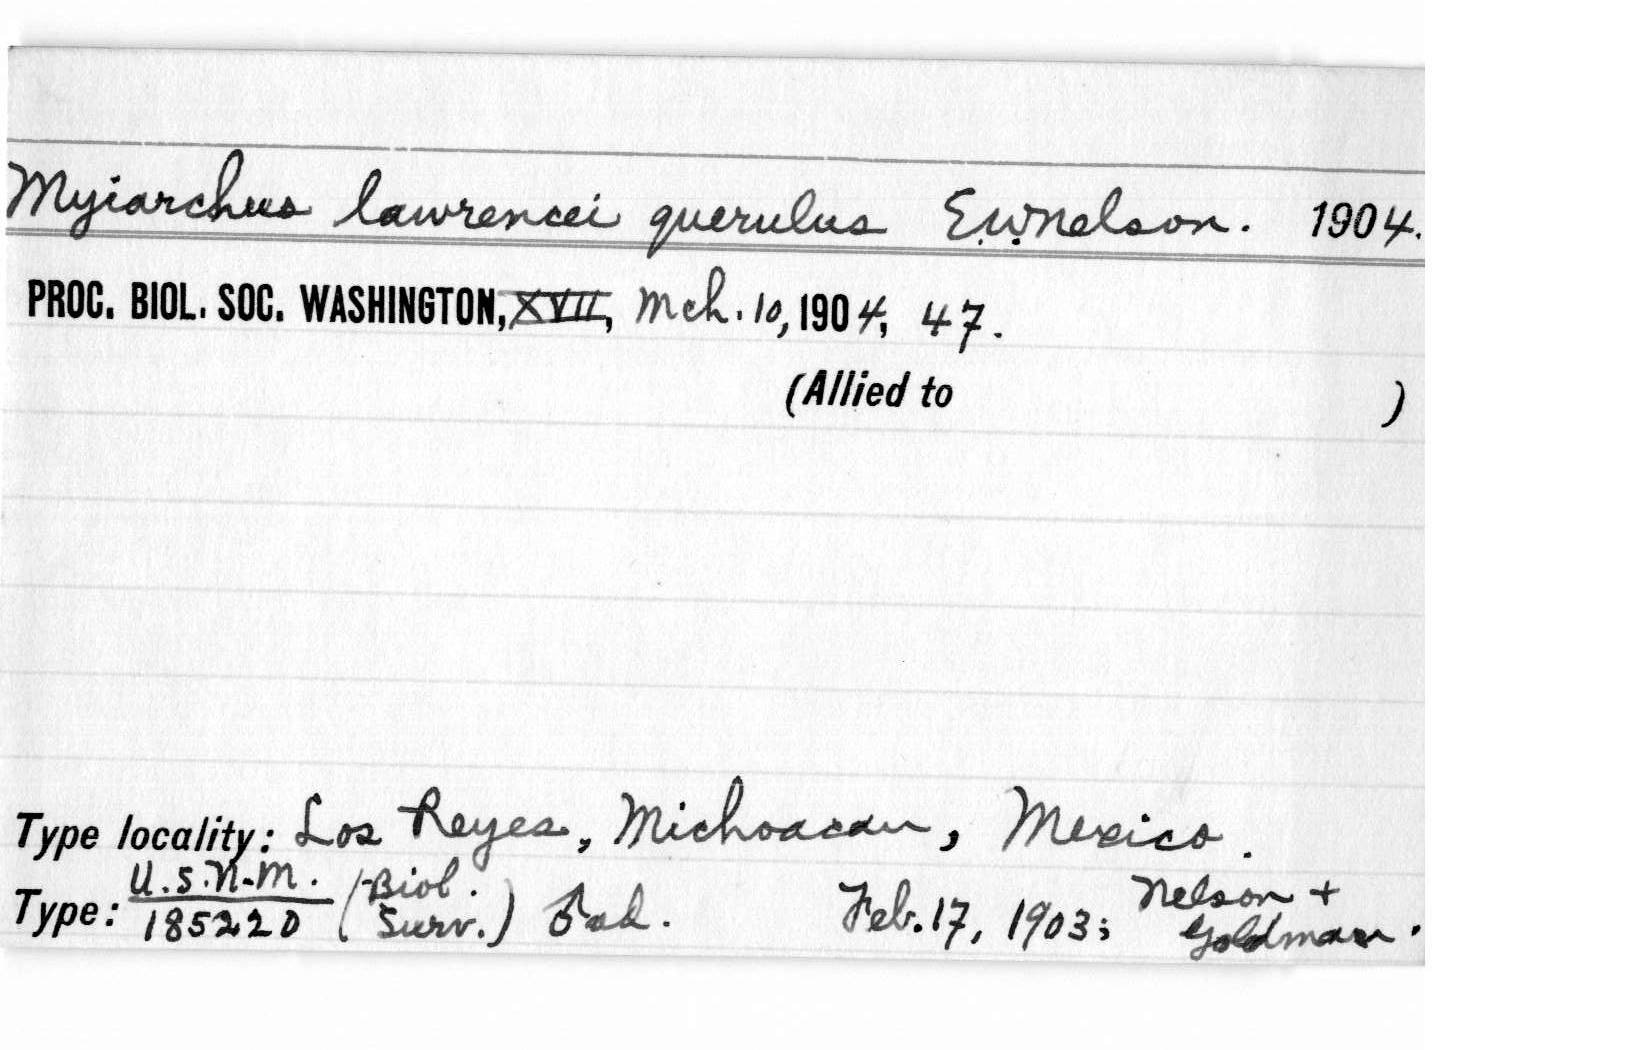 Myiarchus lawrencei querulus E.W. Nelson. 1904.
PROC. BIOL. SOC. WASHINGTON, XVII, Mch. 10, 1904, 47.
(Allied to )
Type locality: Los Reyes, Michoacan, Mexico.
Type: U.S.N.M. 185220 (Biol. Surv.) ♂ ad. Feb. 17, 1903; Nelson + Goldman.